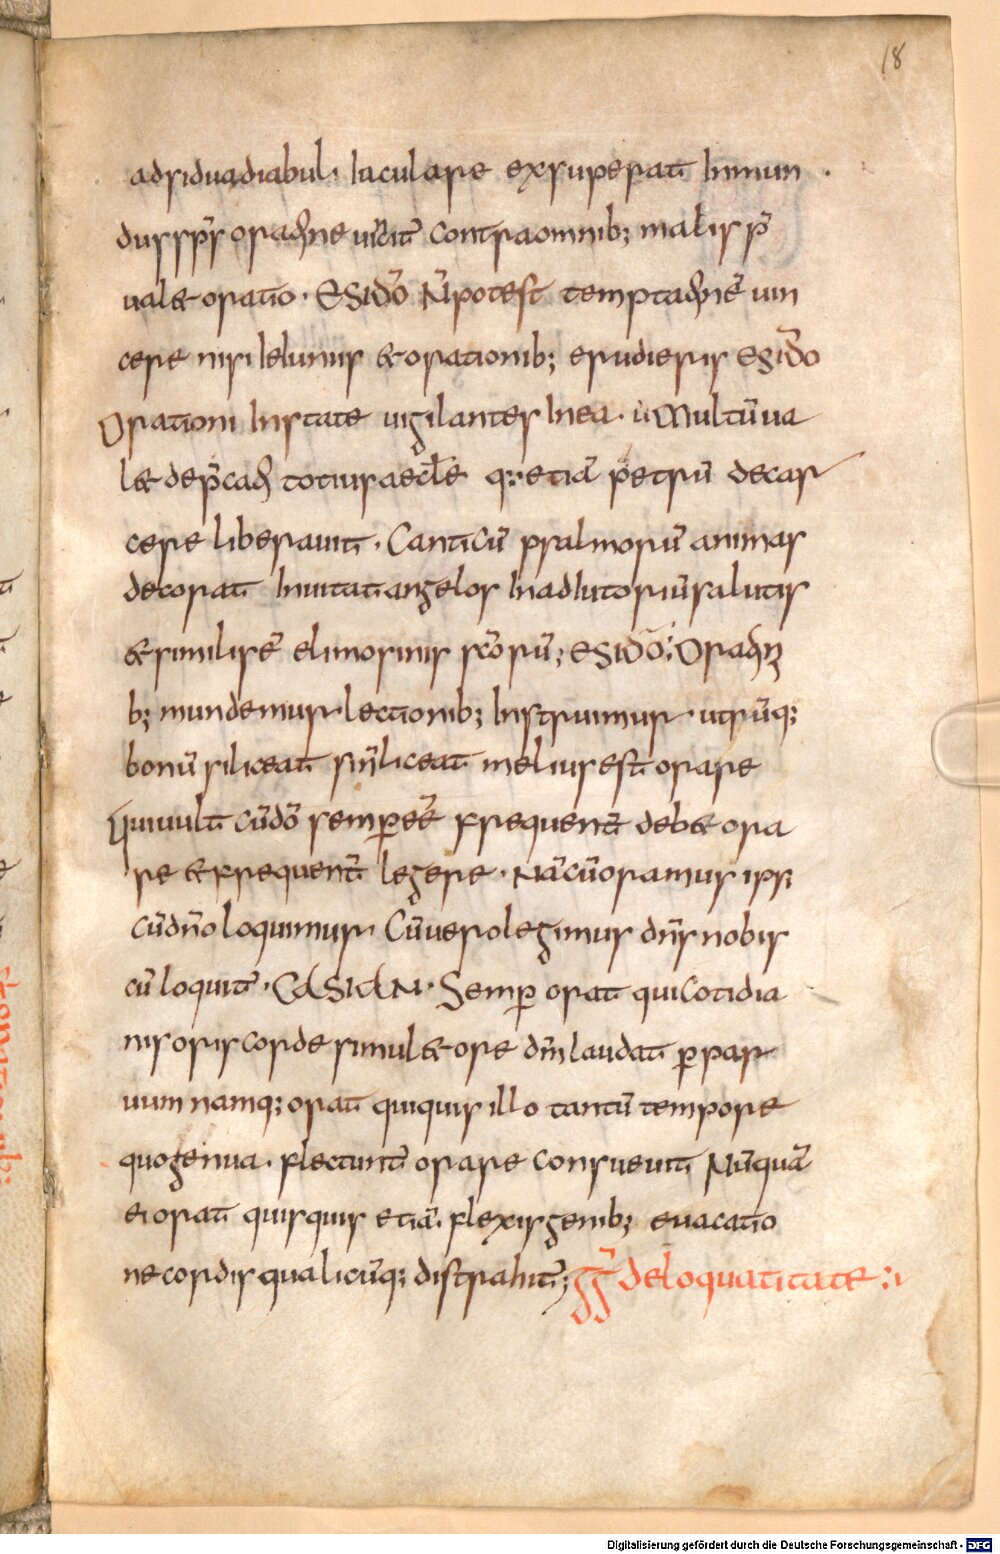 18
adsiduadiabul· Iaculare exsuperat Inmun ·
dus sp̄s oraōne uīcit̄ contraomnib; malis p̄
ual& oratio · ESIDŌ N̄potest temptaōnē uin
cere nisi Ieiuniis &orationib; erudieris ESIDŌ
Orationi Instate uigilantes Inea · ù Multūua
l& dep̄caō totius aeclē q:etiā petrū decar
cere liberauit · Canticū psalmorū animas
decorat Inuitat angelos Inadiutoriūsalutis
&similisē elimosinis sc̄orū; ESIDŌ; Oraōn
b; mundemur lectionib; Instruimur utrūq;
bonū siliceat sin̄liceat melius est orare
Quiuult cūdō semperēē frequent̄ deb& ora
re &frequent̄ legere · Nācūoramus ips;
cūdn̄o loquimur Cūuerolegimus dn̄s nobis
cū loquit̄ · CASIAN · Semp̄ orat quicotidia
nis oris corde simul&ore dm̄ laudat p̄par
uum namq; orat quiquis illo tantū tempore
quogenua · flectunt̄ orare consueuit Nūquā
ei orat quisquis etiā flexisgenib; euacatio
ne cordis qualicūq; distrahit̄; ḡḡ deloquatitate :ı
Digitalisierung gefördert durch die Deutsche Forschungsgemeinschaft - DFG